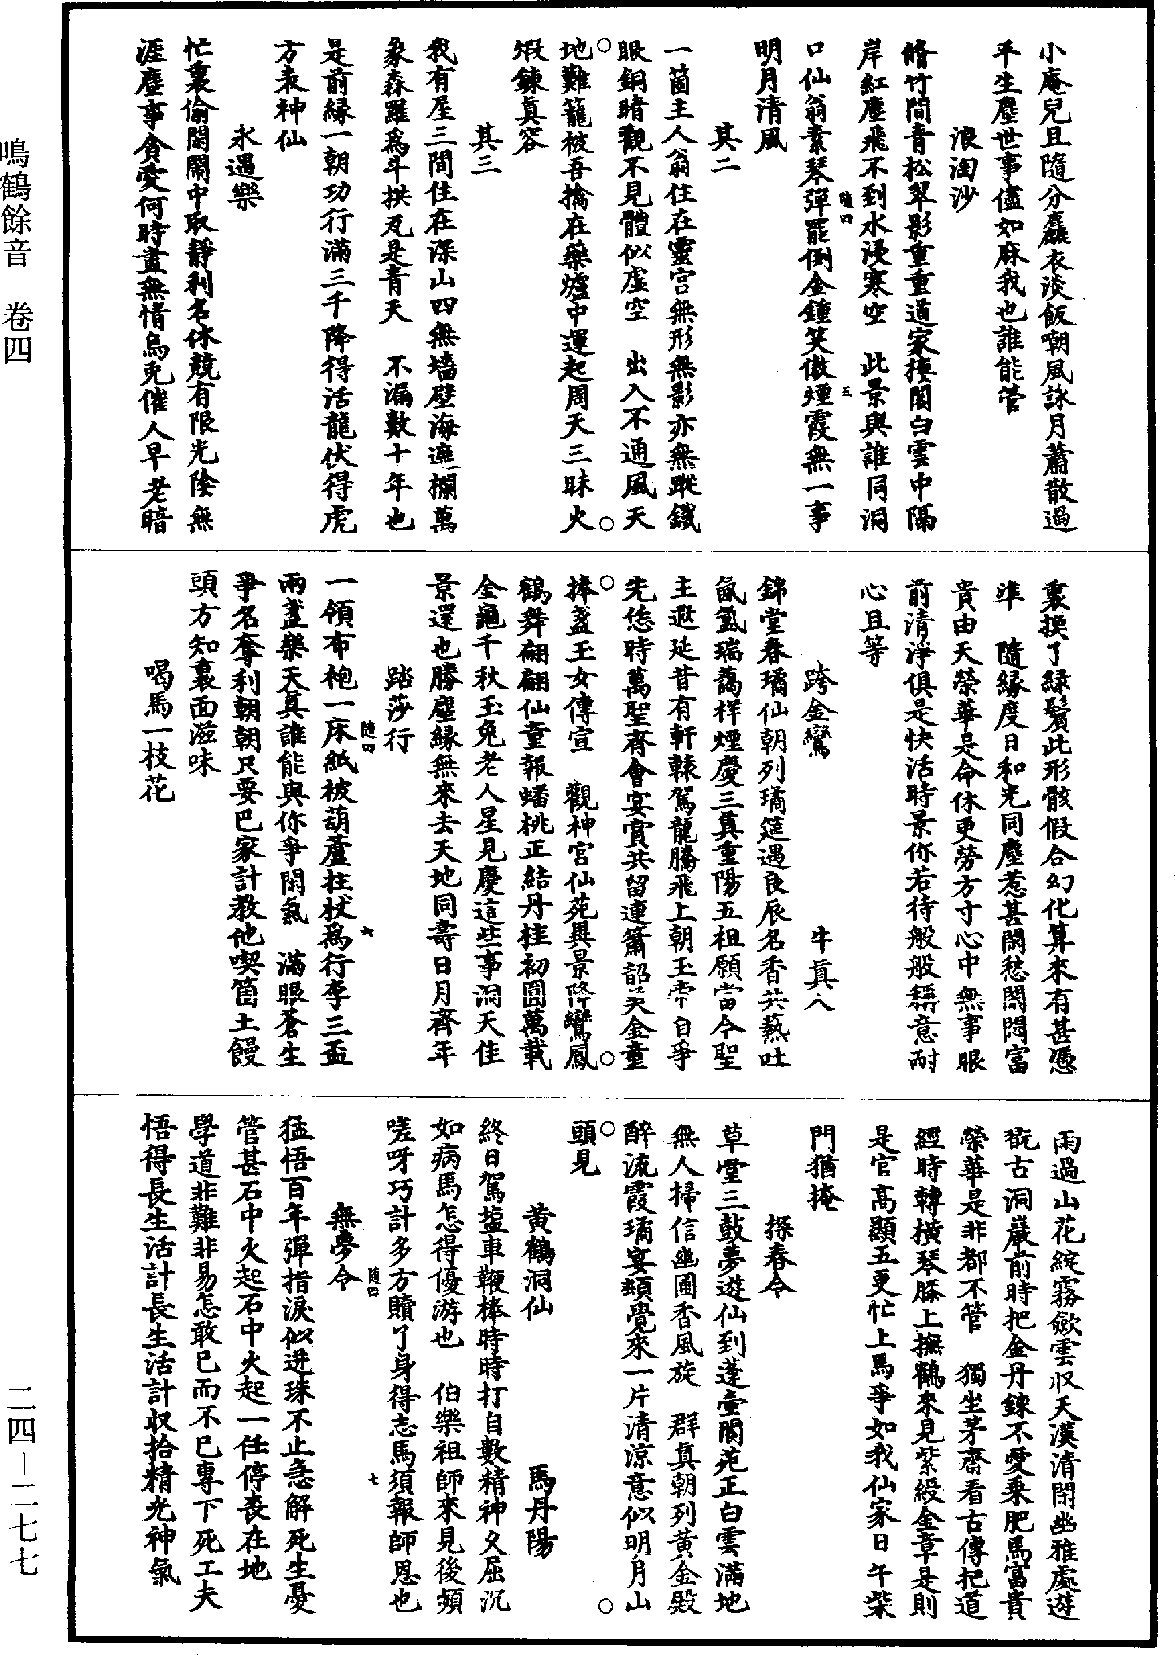 鳴鶴餘音　卷四
二四－二七七
小庵兒且隨分麤衣淡飯嘲風詠月蕭散過
平生塵世事儘如麻我也誰能管
浪淘沙
脩竹間青松翠影重重道家摟閣白雲中隔
岸紅塵飛不到水浸寒空　此景與誰同洞
口仙翁素琴彈罷倒金鍾笑傲煙霞無一事
明月清風
其二
一箇主人翁住在靈宮無形無影亦無蹤鐵
眼銅睛觀不見體似虛空　出入不通風天
地難籠被吾擒在藥爐中運起周天三昧火
煅鍊真容
其三
我有屋三間住在深山四無墻壁海遮攔萬
象森羅為斗拱瓦是青天　不漏數十年也
是前緣一朝功行滿三千降得活龍伏得虎
方表神仙
永遇樂
忙裏偷閑鬧中取靜利名休競有限光陰無
涯塵事貪愛何時盡無情烏兔催人早老暗
裏換了綠鬢此形骸假合幻化算來有甚憑
準　隨緣度日和光同塵惹甚閑愁閑悶富
貴由天榮華是命休更勞方寸心中無事眼
前清淨俱是快活時景你若待般般稱意耐
心且等
跨金鸞
牛真人
錦堂春璚仙朝列璚筵遇良辰名香共爇吐
氤氳瑞靄祥煙慶三真重陽五祖願當今聖
主遐延昔有軒轅駕龍騰飛上朝玉帝自爭
先恁時萬聖齊會宴賞共留連簫韶美金童
捧盞玉女傳宣　觀神宮仙苑異景降鸞鳳
鶴舞翩翩仙童報蟠桃正結丹桂初圓萬載
金龜千秋玉兔老人星見慶這些事洞天佳
景還也勝塵緣無來去天地同壽日月齊年
踏莎行
一領布袍一床紙被葫蘆拄杖為行李三盃
兩盞樂天真誰能與你爭閑氣　滿眼蒼生
爭名奪利朝朝只要巴家計教他喫箇土饅
頭方知裏面滋味
喝馬一枝花
雨過山花綻霧斂雲収天漢清閑幽雅處遊
翫古洞巖前時把金丹鍊不愛乗肥馬富貴
榮華是非都不管　獨坐茅齋看古傳把道
經時轉橫琴膝上撫鶴來見紫綬金章是則
是官高顯五更忙上馬爭如我仙家日午柴
門猶掩
探春令
草堂三鼓夢遊仙到蓬壺閬苑正白雲滿地
無人掃信幽圃香風旋　群真朝列黃金殿
醉流霞璚宴頻覺來一片清涼意似明月山
頭見
黃鶴洞仙
馬丹陽
終日駕塩車鞭棒時時打自數精神久屈沉
如病馬怎得優游也　伯樂祖師來見後頻
嗟呀巧計多方贖了身得志馬須報師恩也
無夢令
猛悟百年彈指淚似迸珠不止急解死生憂
管甚石中火起石中火起一任停喪在地
學道非難非易怎敢巳而不巳專下死工夫
悟得長生活計長生活計収拾精光神氣
隨四
五
隨四
六
隨四
七